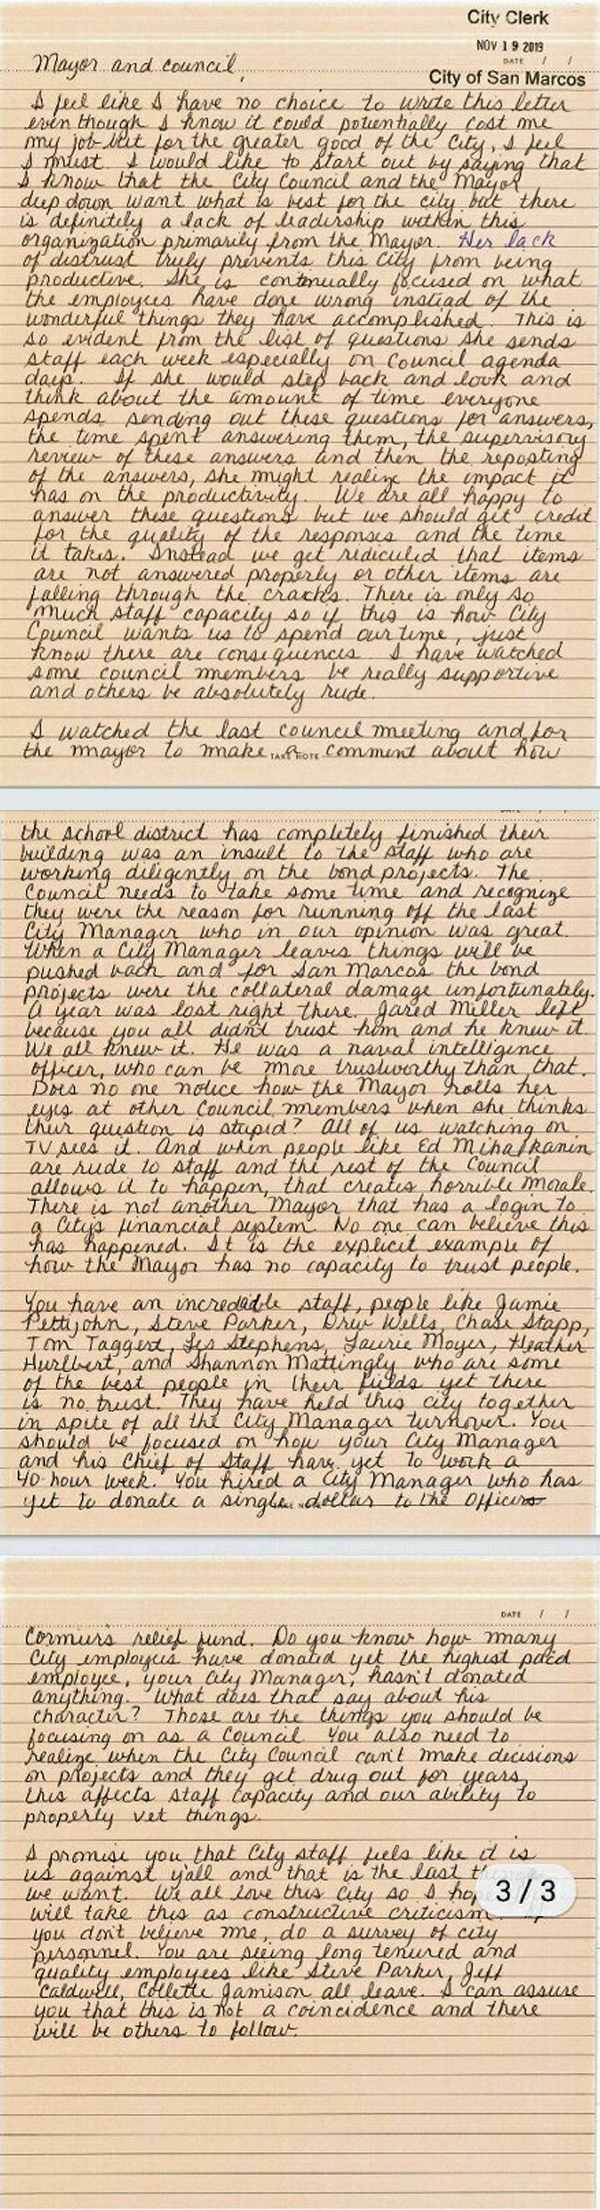 City Clerk
NOV 19 2019
DATE / /
Mayor and council,
City of San Marcos
I feel like I have no choice to write this letter
even though I know it could potentially cost me
my job but for the greater good of the City, I feel
I must. I would like to start out by saying that
I know that the City Council and the Mayor
deep down want what is best for the city but there
is definitely a lack of leadership within this
organization primarily from the Mayor. Her lack
of distrust truly prevents this City from being
productive. She is continually focused on what
the employees have done wrong instead of the
wonderful things they have accomplished. This is
so evident from the list of questions she sends
staff each week especially on Council agenda
days. If she would step back and look and
think about the amount of time everyone
spends sending out these questions for answers,
the time spent answering them, the supervisory
review of these answers and then the reposting
of the answers, she might realize the impact it
has on the productivity. We are all happy to
answer these questions but we should get credit
for the quality of the responses and the time
it takes. Instead we get rediculed that items
are not answered properly or other items are
falling through the cracks. There is only so
much staff capacity so if this is how City
Council wants us to spend our time, just
know there are consequences. I have watched
some council members be really supportive
and others be absolutely rude.
I watched the last council meeting and for
the mayor to make a comment about how
TAKE NOTE
the school district has completely finished their
building was an insult to the staff who are
working diligently on the bond projects. The
Council needs to take some time and recognize
they were the reason for running off the last
City Manager who in our opinion was great.
When a City Manager leaves things will be
pushed back and for San Marcos the bond
projects were the collateral damage unfortunately.
A year was lost right there. Jared Miller left
because you all didn't trust him and he knew it.
We all knew it. He was a naval intelligence
officer, who can be more trustworthy than that.
Does no one notice how the Mayor rolls her
eyes at other Council members when she thinks
their question is stupid? All of us watching on
TV sees it. And when people like Ed Mihalkanin
are rude to staff and the rest of the Council
allows it to happen, that creates horrible morale.
There is not another Mayor that has a login to
a City's financial system. No one can believe this
has happened. It is the explicit example of
how the Mayor has no capacity to trust people.
You have an incredable staff, people like Jamie
Pettijohn, Steve Parker, Drew Wells, Chase Stapp,
Tom Taggert, Les Stephens, Laurie Moyer, Heather
Hurlbert, and Shannon Mattingly who are some
of the best people in their fields yet there
is no trust. They have held this city together
in spite of all the City Manager turnover. You
should be focused on how your City Manager
and his Chief of Staff have yet to work a
40 hour week. You hired a City Manager who has
yet to donate a single dollar to the Officers
DATE / /
Cormier's relief fund. Do you know how many
City employees have donated yet the highest paid
employee, your City Manager, hasn't donated
anything. What does that say about his
character? Those are the things you should be
focusing on as a Council. You also need to
realize when the City Council can't make decisions
on projects and they get drug out for years,
this affects staff capacity and our ability to
properly vet things.
I promise you that City staff feels like it is
us against y'all and that is the last
we want. We all love this City so I
will take this as constructive criticism.
3/3
you don't believe me, do a survey of city
personnel. You are seeing long tenured and
quality employees like Steve Parker, Jeff
Caldwell, Collette Jamison all leave. I can assure
you that this is not a coincidence and there
will be others to follow.